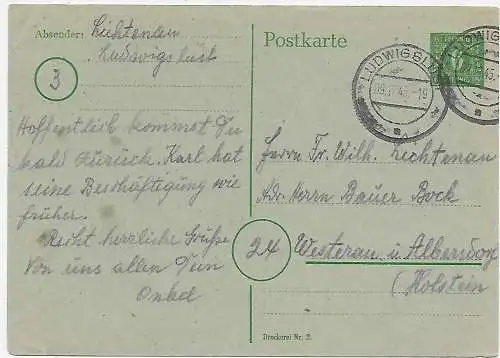 Absender: Lichtenau
Ludwigslust
3
Hoffentlich kommst Du
bald zurück. Karl hat
seine Beschäftigung wie
früher.
Recht herzliche Grüße
von uns allen Dein
Onkel
Postkarte
LUDWIGSLUST
LUDWIGSL
Herrn Fr. Wilh. Lichtenau
Adr. Herrn Bauer Bock
24 Westerau ü. Albersdorf
(Holstein
Druckerei Nr. 2.